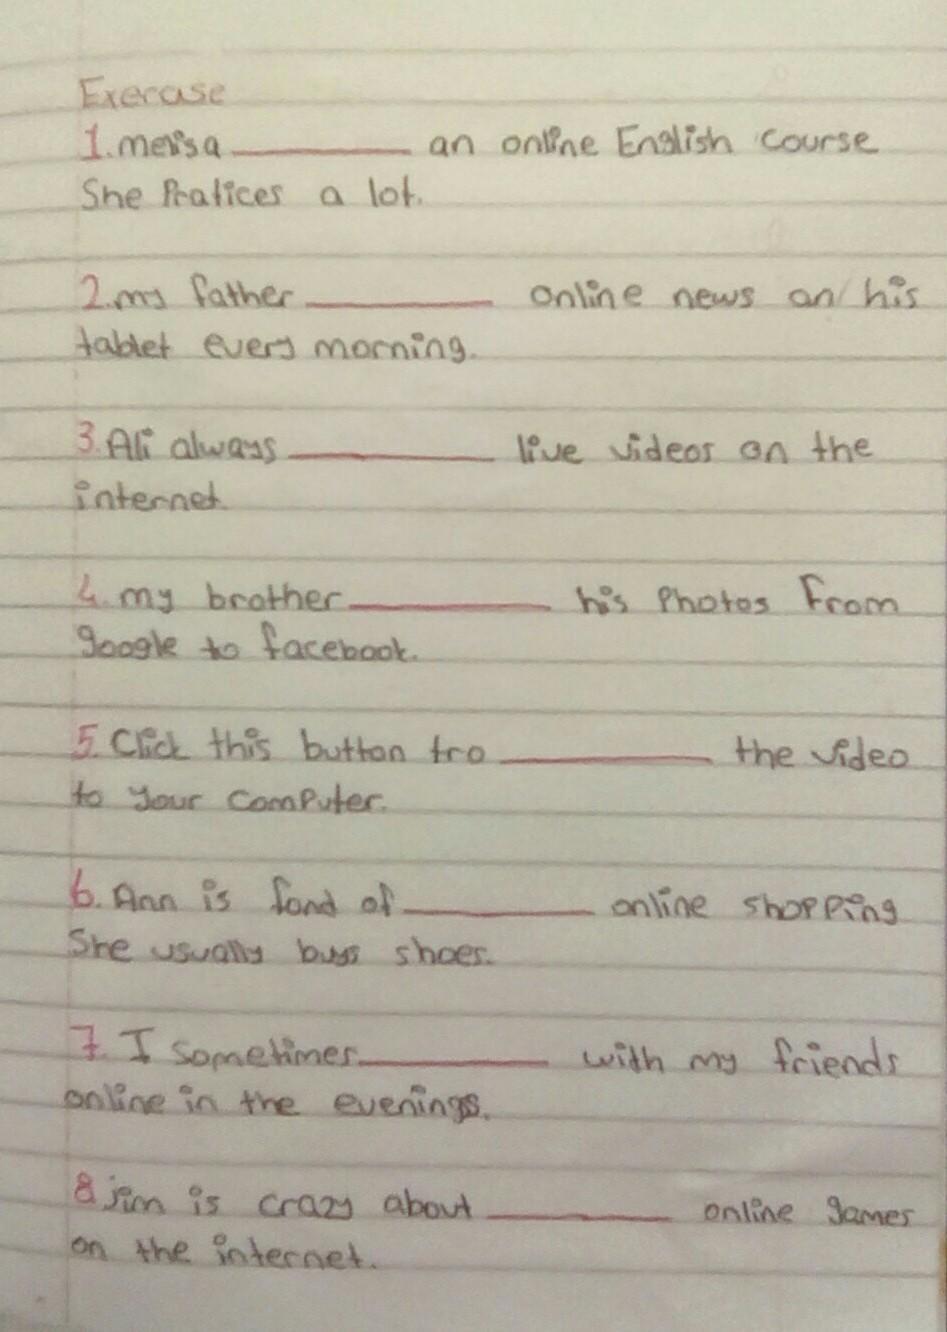 Exercise
1. melisa ________ an online English course
She Pratices a lot.
2. my father ________ online news on his
tablet every morning.
3. Ali always ________ live videos on the
internet.
4. my brother ________ his Photos From
google to facebook.
5. Click this button tro ________ the video
to your computer.
6. Ann is fond of ________ online shopping
She usually buys shoes.
7. I sometimes ________ with my friends
online in the evenings.
8 jim is crazy about ________ online games
on the internet.